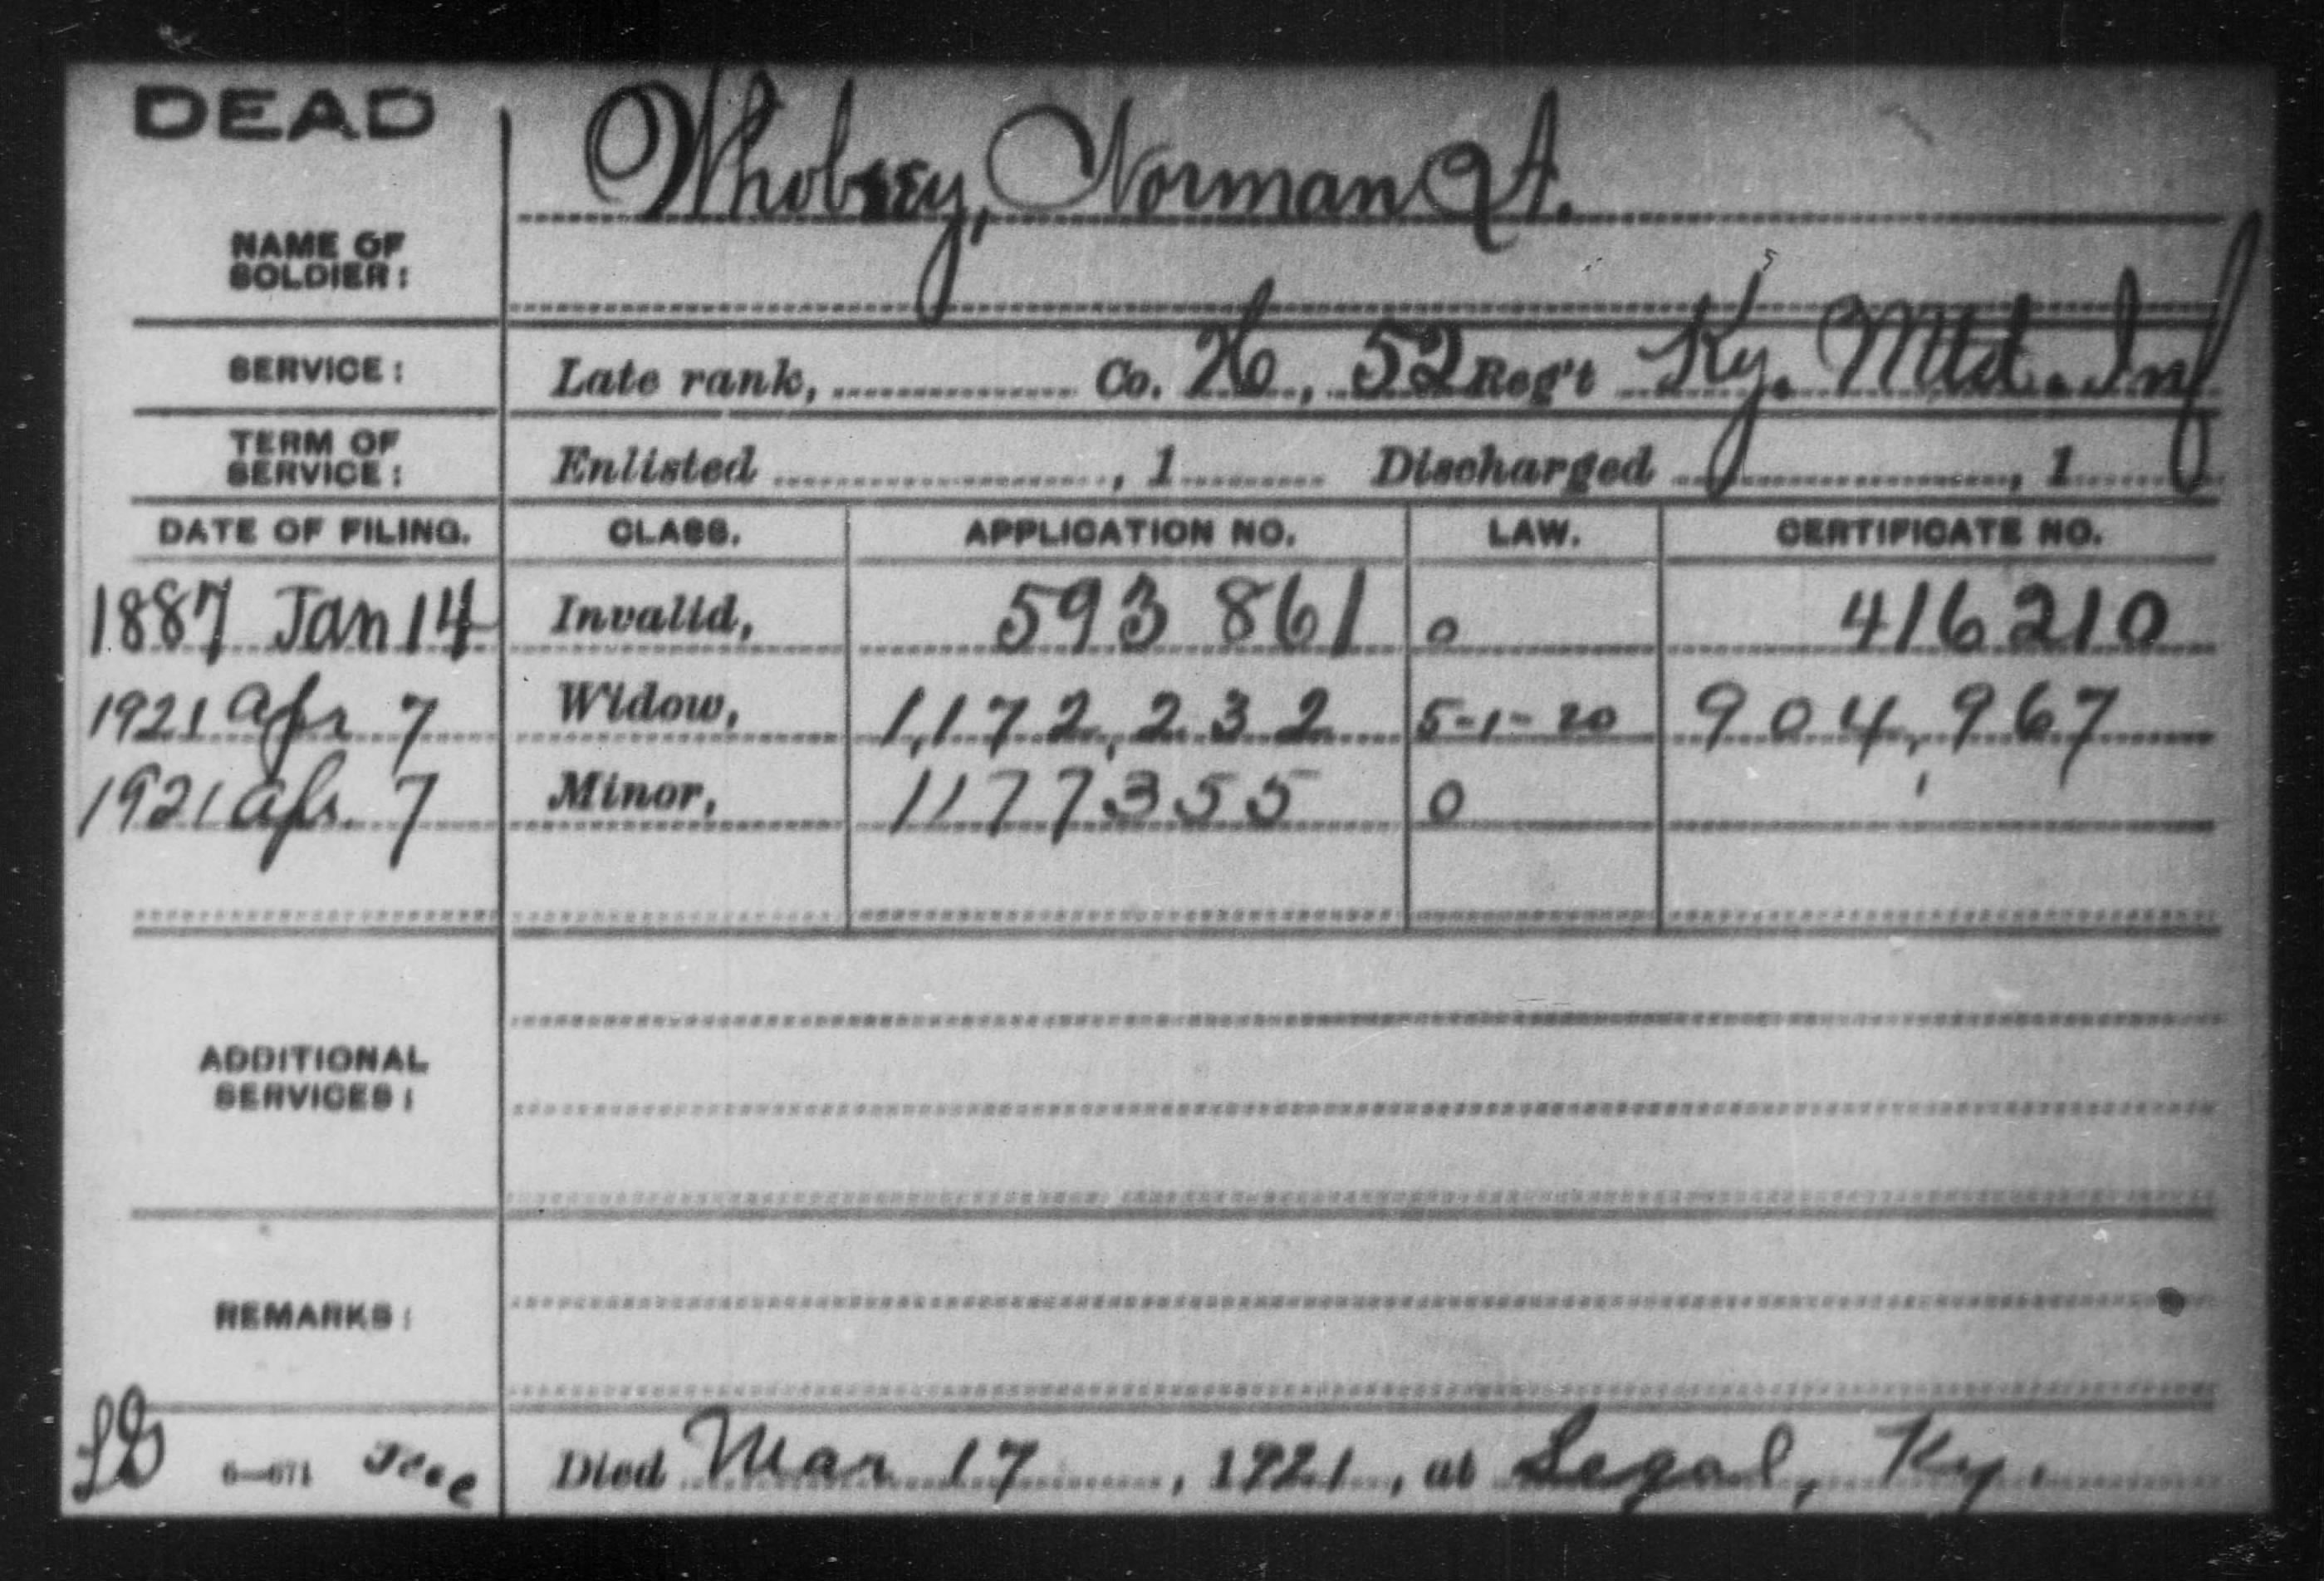 DEAD
Whobrey, Norman A.
NAME OF
SOLDIER:
SERVICE: Late rank, Co. H, 52 Reg't Ky. Mtd. Inf
TERM OF
SERVICE: Enlisted , 1 Discharged , 1
DATE OF FILING. CLASS. APPLICATION NO. LAW. CERTIFICATE NO.
1887 Jan 14 Invalid, 593 861 0 416 210
1921 Apr 7 Widow, 1,172,232 5-1-20 904,967
1921 Apr. 7 Minor, 1177355 0
ADDITIONAL
SERVICES:
REMARKS:
6—671 Died Mar 17, 1921, at Segal, Ky.